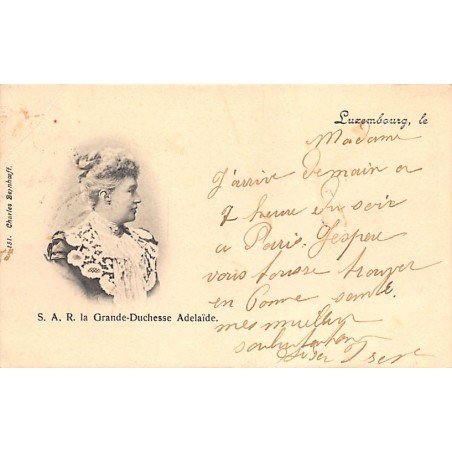 151. Charles Bernhoeft.
S. A. R. la Grande-Duchesse Adelaïde.
Luxembourg, le
Madame
J'arrive demain a
7 heure du soir
a Paris. J'esper
vous trouver
en bonne santé.
mes meilleur